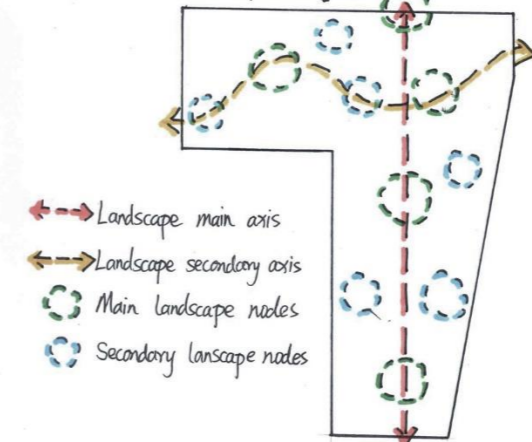 Landscape main axis
Landscape secondary axis
Main landscape nodes
Secondary lanscape nodes